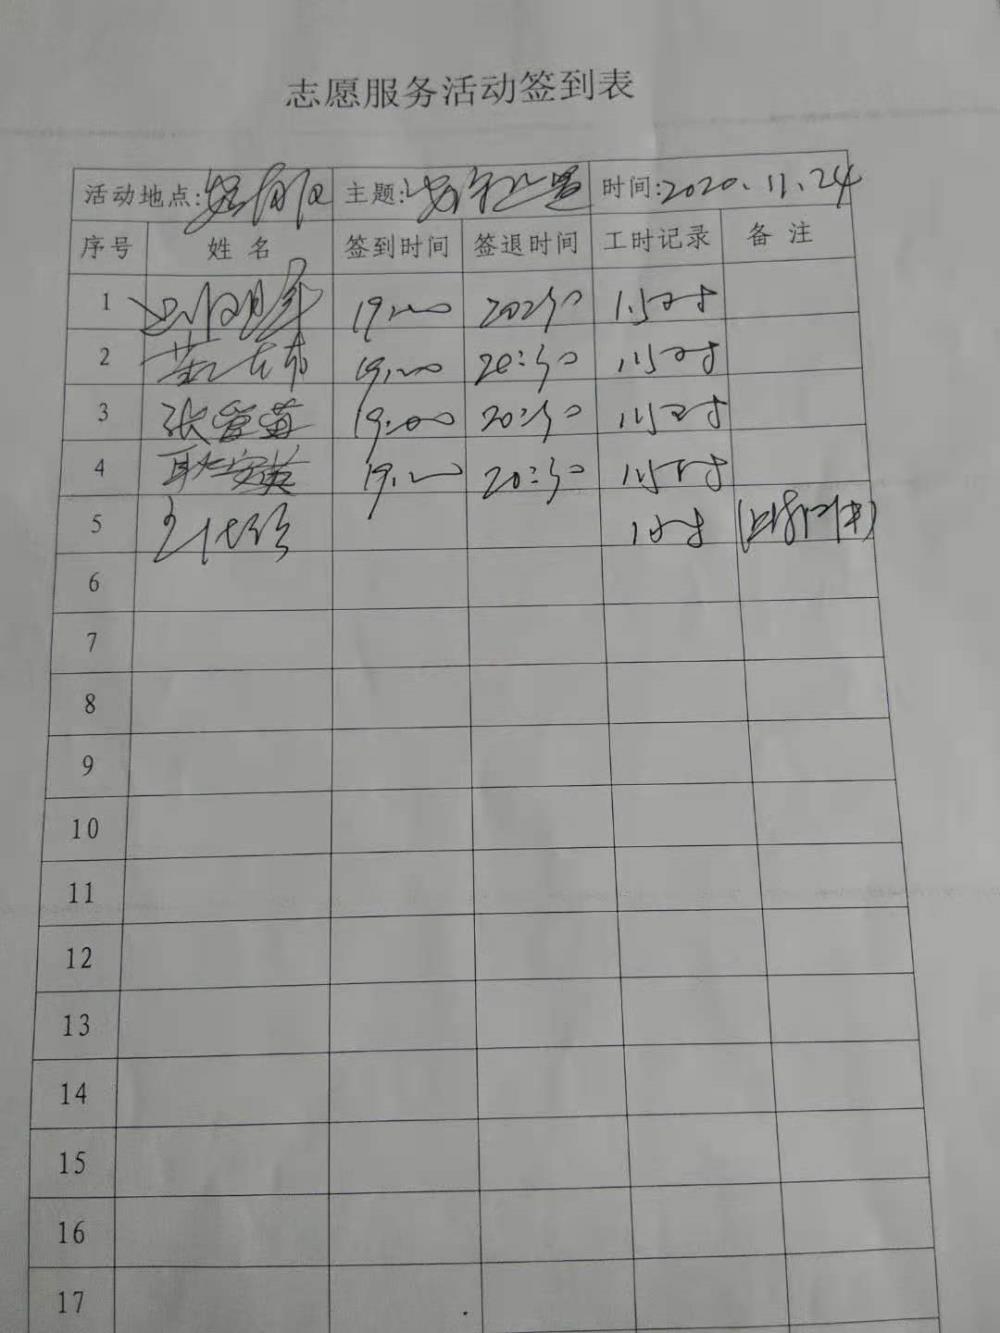 志愿服务活动签到表
活动地点: 主题: 时间:2020.11.24
序号 姓名 签到时间 签退时间 工时记录 备注
1 19:00 20:30 1.5小时
2 19:00 20:30 1.5小时
3 张雪莲 19:00 20:30 1.5小时
4 耿安英 19:00 20:30 1.5小时
5 1小时
6
7
8
9
10
11
12
13
14
15
16
17